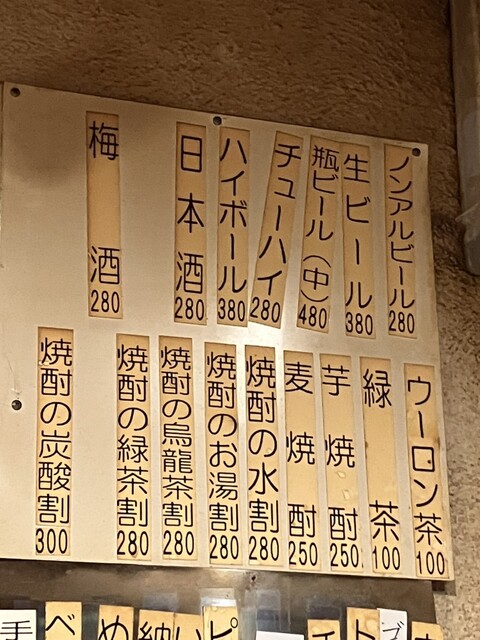 ノンアルビール 280
生ビール 380
瓶ビール(中) 480
チューハイ 280
ハイボール 380
日本酒 280
梅酒 280
ウーロン茶 100
緑茶 100
芋焼酎 250
麦焼酎 250
焼酎の水割 280
焼酎のお湯割 280
焼酎の烏龍茶割 280
焼酎の緑茶割 280
焼酎の炭酸割 300